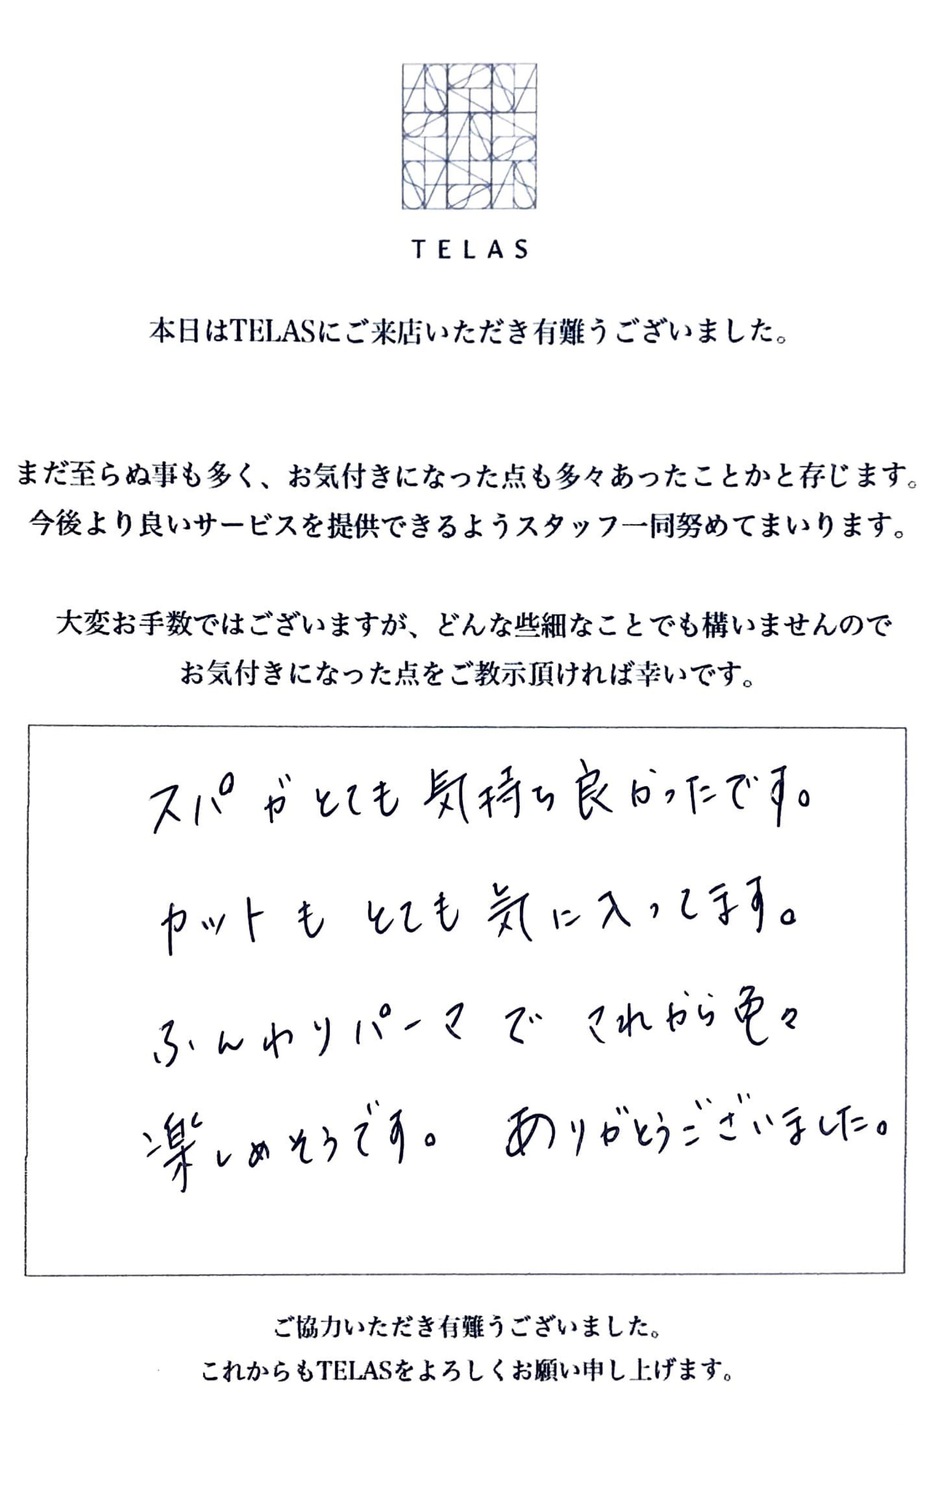 TELAS
本日はTELASにご来店いただき有難うございました。
まだ至らぬ事も多く、お気付きになった点も多々あったことかと存じます。
今後より良いサービスを提供できるようスタッフ一同努めてまいります。
大変お手数ではございますが、どんな些細なことでも構いませんので
お気付きになった点をご教示頂ければ幸いです。
スパがとても気持ち良かったです。
カットもとても気に入ってます。
ふんわりパーマでこれから色々
楽しめそうです。ありがとうございました。
ご協力いただき有難うございました。
これからもTELASをよろしくお願い申し上げます。